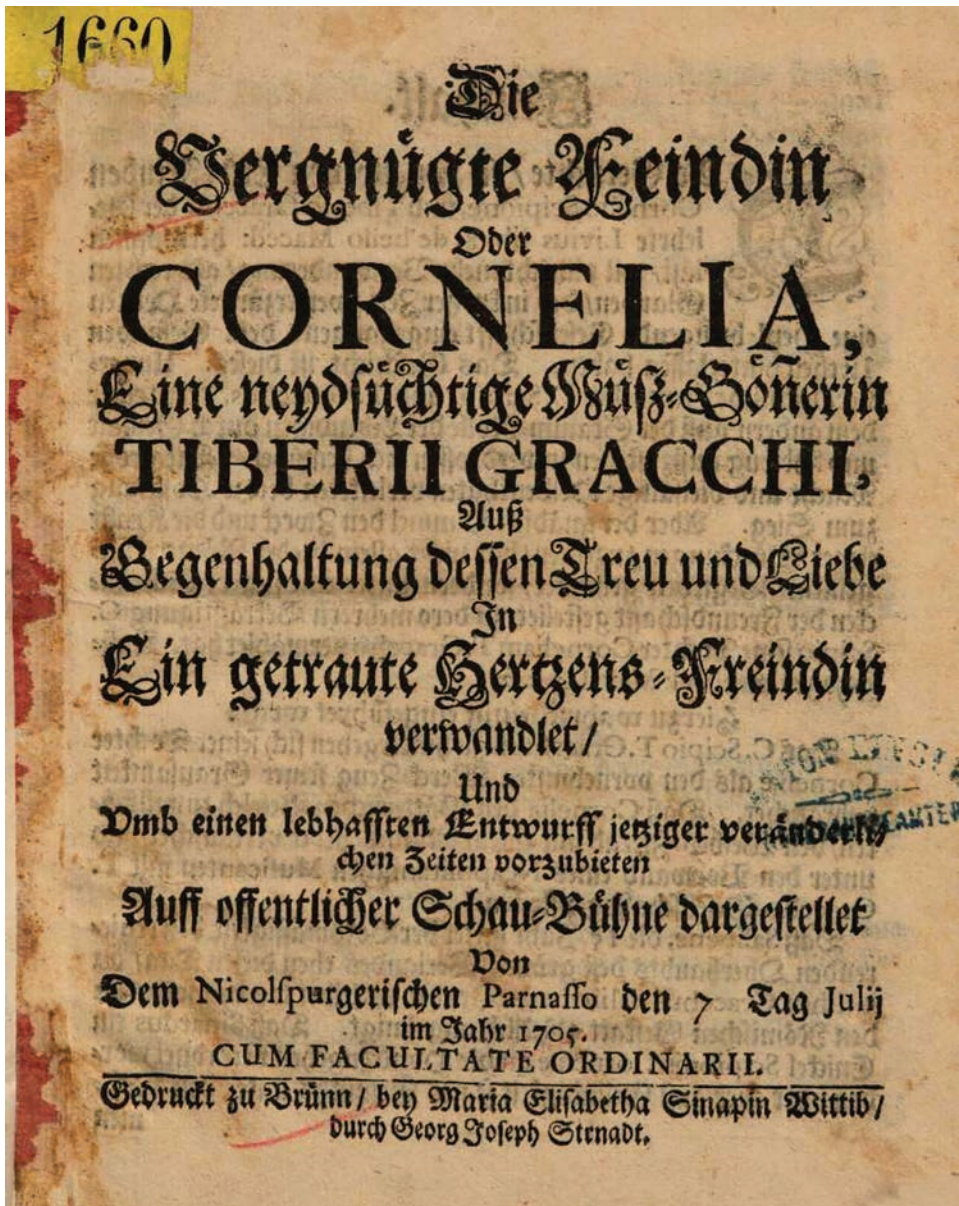 1660
Die
Vergnügte Feindin
Oder
CORNELIA,
Eine neydsüchtige Müsz-Göñerin
TIBERII GRACCHI,
Auß
Gegenhaltung dessen Treu und Liebe
In
Ein getraute Hertzens-Freindin
verwandlet/
Und
Vmb einen lebhafften Entwurff jetziger veränderli-
chen Zeiten vorzubieten
Auff offentlicher Schau-Bühne dargestellet
Von
Dem Nicolspurgerischen Parnasso den 7 Tag Julij
im Jahr 1705.
CUM FACULTATE ORDINARII.
Gedruckt zu Brünn/ bey Maria Elisabetha Sinapin Wittib/
durch Georg Joseph Strnadt.